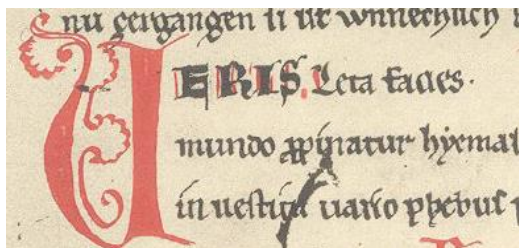 nu çergangen wnnechlich
VERIS Leta facies.
mundo ꝓpinatur hẏemal
in uestitu uario phebus